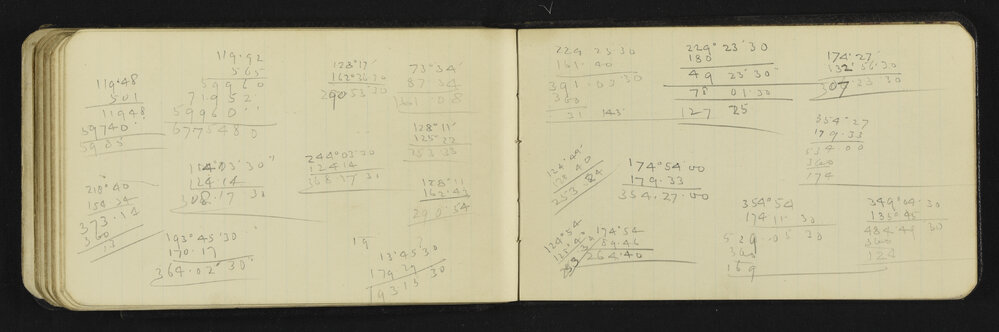 119.92
565
59960
71952
59960
677548 0
119.48
501
11948
59740
128° 17'
162° 36 30
290 53 30
73° 34'
87.34
161.08
128° 11'
125 22
153 33
218° 40
154 34
373.14
360
13
184° 03' 30"
124.14
308.17 30
244° 03' 30
124 14
368.17 30
128° 11
162.43
290.54
193° 45' 30"
170.17
364.02' 30"
19
13° 45 30
179 29 30
19315
229 23 30
161.40
391.03.30
360
31
143'
229° 23' 30
180
49 23' 30"
78 01.30
127 25
174° 27'
132° 56.30
307 23 30
354° 27
179.33
534 00
360
174
124° 49'
128 40
253.84
174° 54' 00
179.33
354.27.00
124° 54'
174° 54
89.46
264.40
354° 54
174 11 30
529.05 30
360
169
349° 04' 30
135° 45
484 49 30
360
124